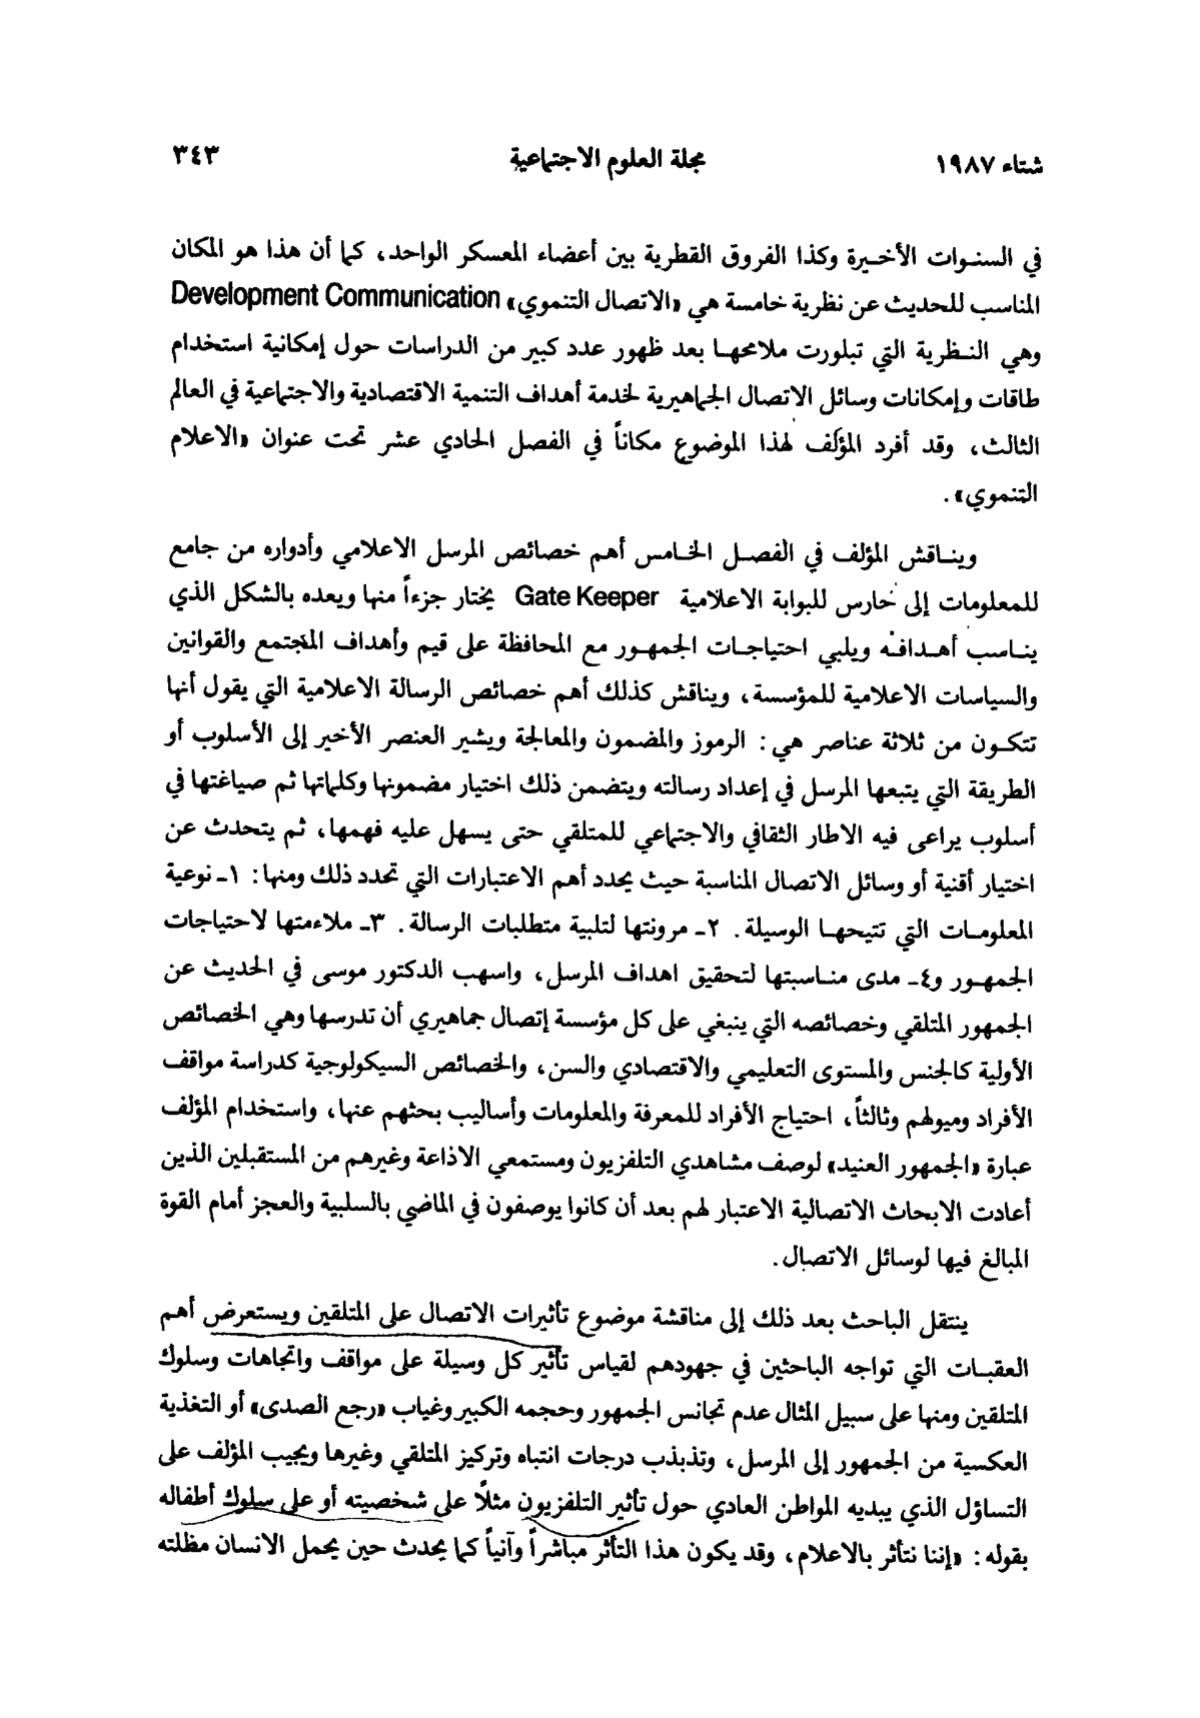 شتاء ١٩٨٧ مجلة العلوم الاجتماعية ٣٤٣
في السنوات الأخيرة وكذا الفروق القطرية بين أعضاء المعسكر الواحد، كما أن هذا هو المكان
المناسب للحديث عن نظرية خامسة هي «الاتصال التنموي» Development Communication
وهي النظرية التي تبلورت ملامحها بعد ظهور عدد كبير من الدراسات حول إمكانية استخدام
طاقات وإمكانات وسائل الاتصال الجماهيرية لخدمة أهداف التنمية الاقتصادية والاجتماعية في العالم
الثالث، وقد أفرد المؤلف لهذا الموضوع مكاناً في الفصل الحادي عشر تحت عنوان «الاعلام
التنموي».
ويناقش المؤلف في الفصل الخامس أهم خصائص المرسل الاعلامي وأدواره من جامع
للمعلومات إلى حارس للبوابة الاعلامية Gate Keeper يختار جزءاً منها ويعده بالشكل الذي
يناسب أهدافه ويلبي احتياجات الجمهور مع المحافظة على قيم وأهداف المجتمع والقوانين
والسياسات الاعلامية للمؤسسة، ويناقش كذلك أهم خصائص الرسالة الاعلامية التي يقول أنها
تتكون من ثلاثة عناصر هي: الرموز والمضمون والمعالجة ويشير العنصر الأخير إلى الأسلوب أو
الطريقة التي يتبعها المرسل في إعداد رسالته ويتضمن ذلك اختيار مضمونها وكلماتها ثم صياغتها في
أسلوب يراعى فيه الاطار الثقافي والاجتماعي للمتلقي حتى يسهل عليه فهمها، ثم يتحدث عن
اختيار أقنية أو وسائل الاتصال المناسبة حيث يحدد أهم الاعتبارات التي تحدد ذلك ومنها: ١ـ نوعية
المعلومات التي تتيحها الوسيلة. ٢ـ مرونتها لتلبية متطلبات الرسالة. ٣ـ ملاءمتها لاحتياجات
الجمهور و٤ـ مدى مناسبتها لتحقيق اهداف المرسل، واسهب الدكتور موسى في الحديث عن
الجمهور المتلقي وخصائصه التي ينبغي على كل مؤسسة إتصال جماهيري أن تدرسها وهي الخصائص
الأولية كالجنس والمستوى التعليمي والاقتصادي والسن، والخصائص السيكولوجية كدراسة مواقف
الأفراد وميولهم وثالثاً، احتياج الأفراد للمعرفة والمعلومات وأساليب بحثهم عنها، واستخدام المؤلف
عبارة «الجمهور العنيد» لوصف مشاهدي التلفزيون ومستمعي الاذاعة وغيرهم من المستقبلين الذين
أعادت الابحاث الاتصالية الاعتبار لهم بعد أن كانوا يوصفون في الماضي بالسلبية والعجز أمام القوة
المبالغ فيها لوسائل الاتصال.
ينتقل الباحث بعد ذلك إلى مناقشة موضوع تأثيرات الاتصال على المتلقين ويستعرض أهم
العقبات التي تواجه الباحثين في جهودهم لقياس تأثير كل وسيلة على مواقف واتجاهات وسلوك
المتلقين ومنها على سبيل المثال عدم تجانس الجمهور وحجمه الكبير وغياب «رجع الصدى» أو التغذية
العكسية من الجمهور إلى المرسل، وتذبذب درجات انتباه وتركيز المتلقي وغيرها ويجيب المؤلف على
التساؤل الذي يبديه المواطن العادي حول تأثير التلفزيون مثلاً على شخصيته أو على سلوك أطفاله
بقوله: «إننا نتأثر بالاعلام، وقد يكون هذا التأثر مباشراً وآنياً كما يحدث حين يحمل الانسان مظلته